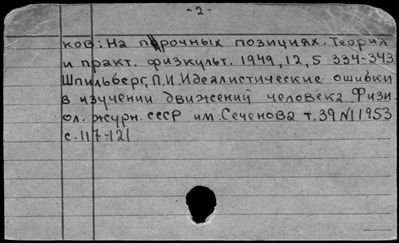 -2-
ков: На порочных позициях. Теория
и практ. физкульт. 1949, 12, 5 334-343
Шпильберг, П.И. Идеалистические ошибки
в изучении движений человека. Физи-
ол. журн. СССР им. Сеченова т. 39 N1 1953
с. 117-121